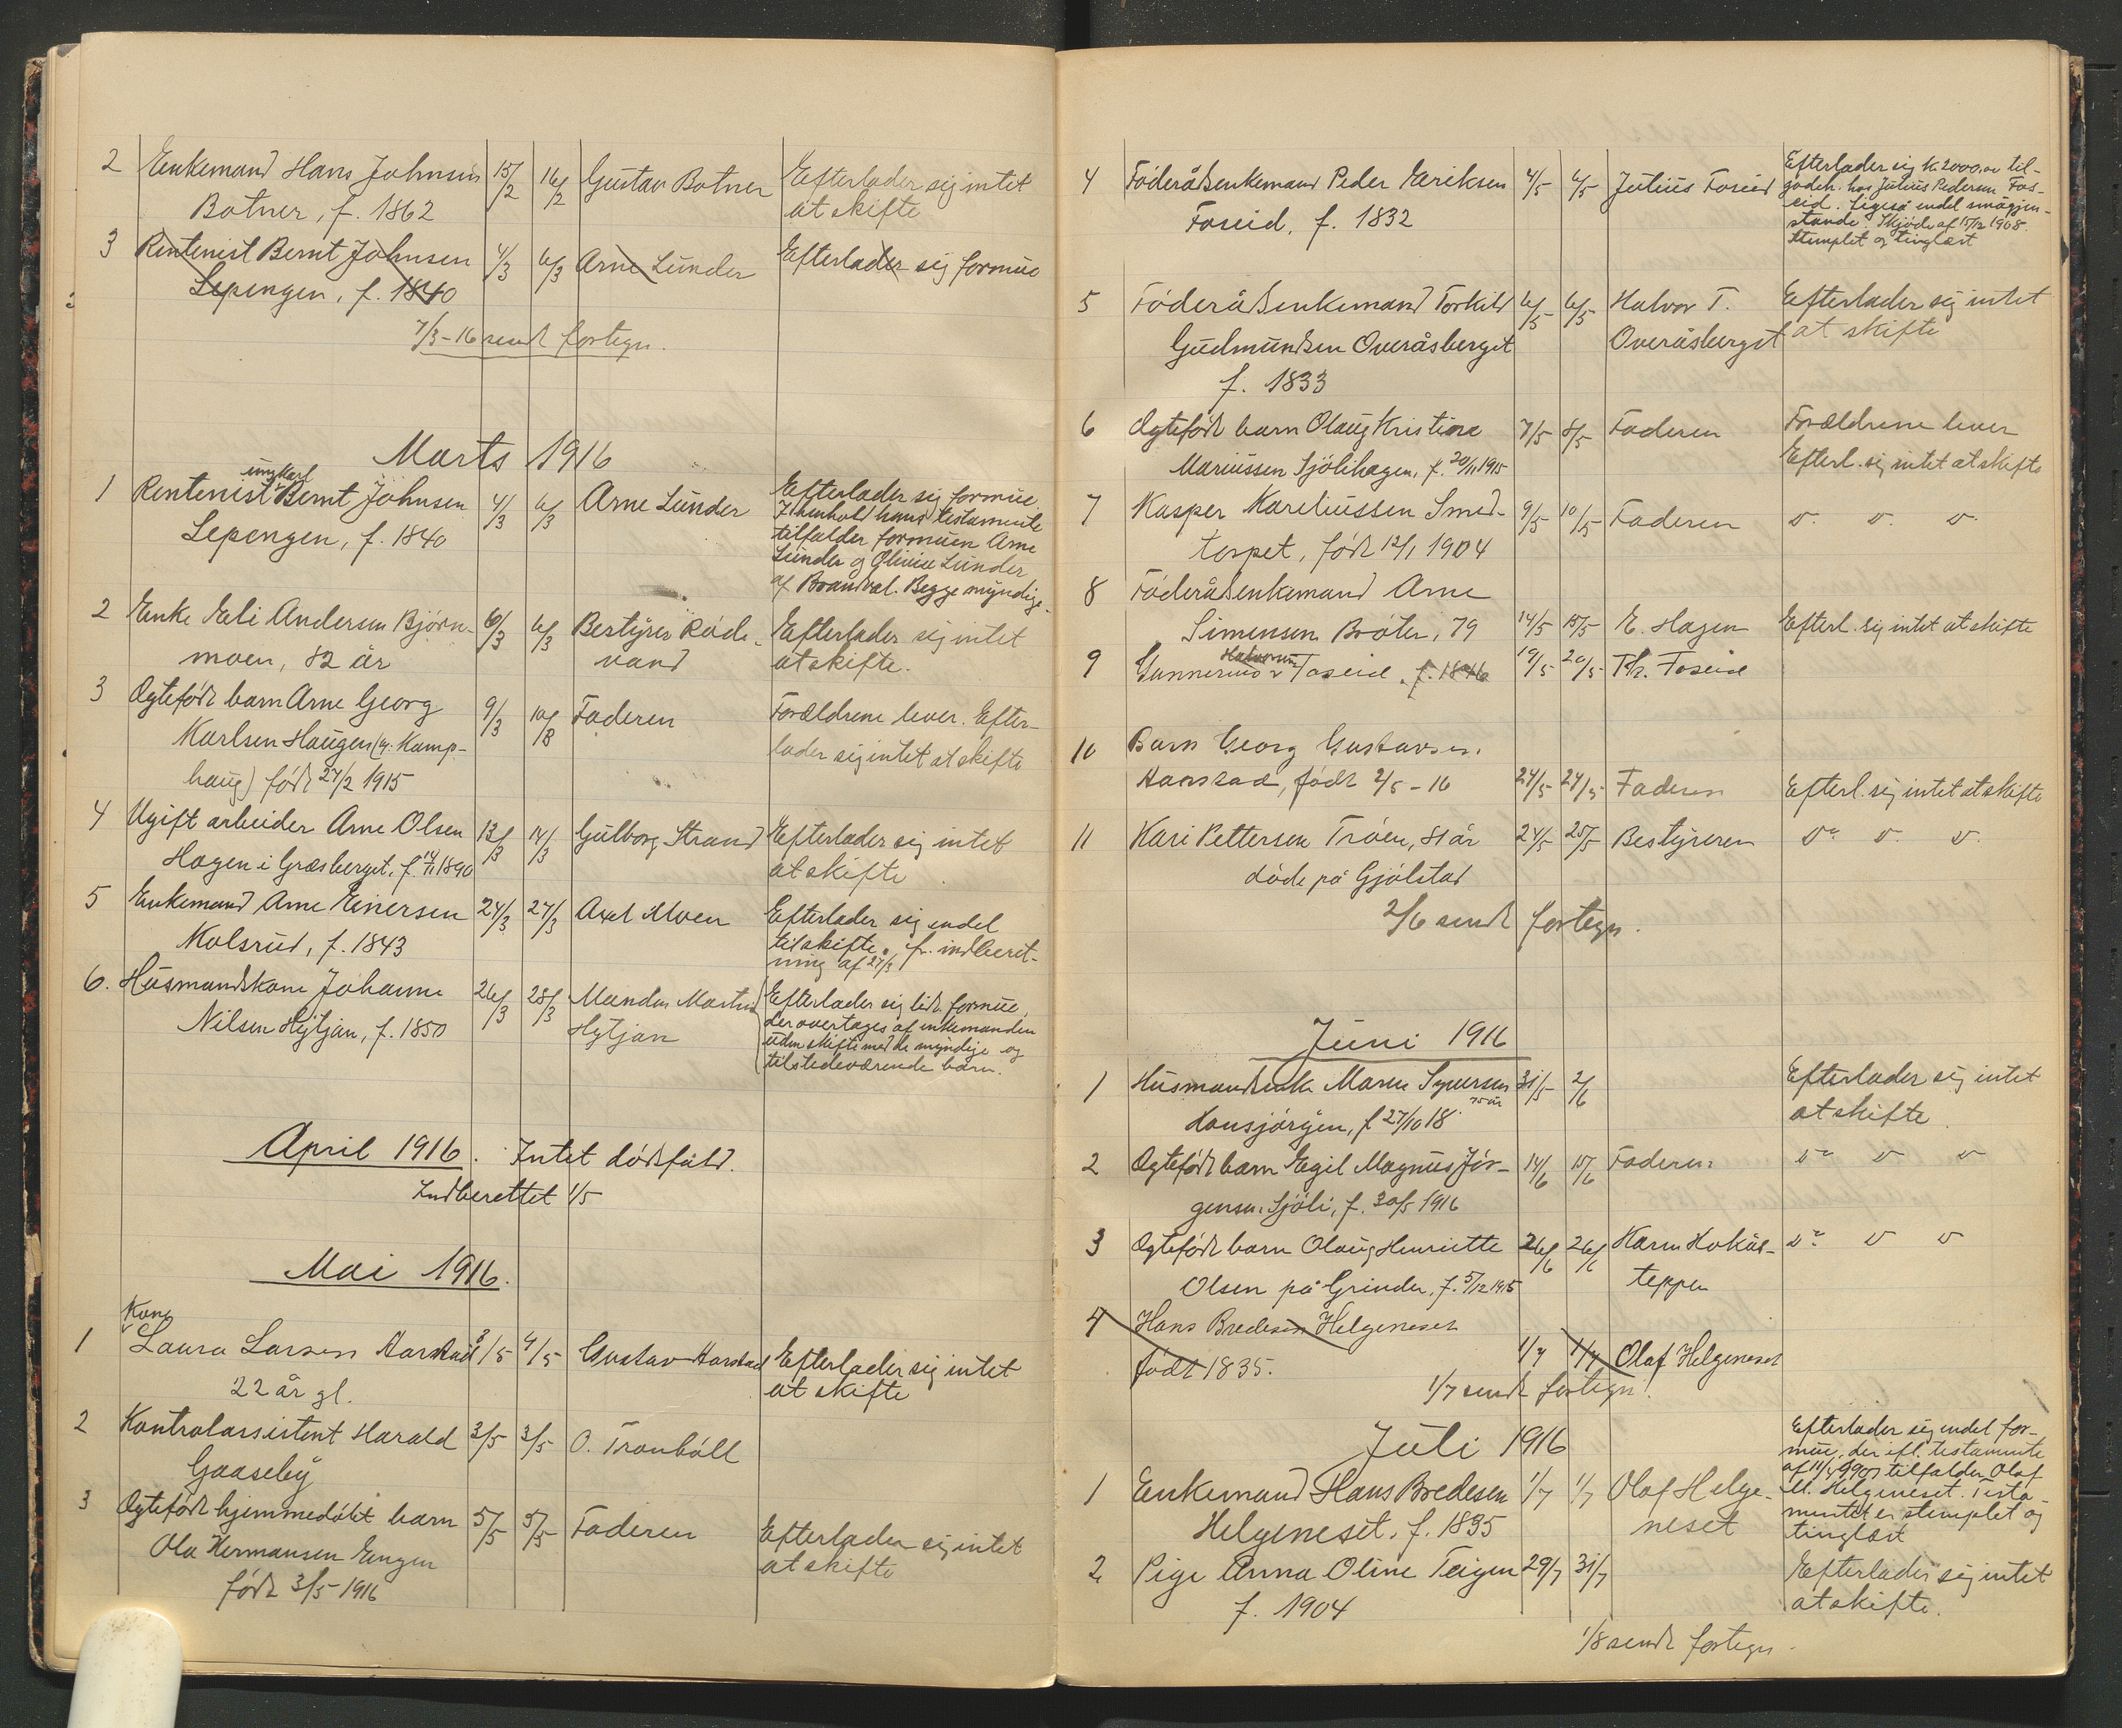 2 Enkemand Hans Johnsen 15/2 16/2 Gustav Botner Efterlader sig intet
Botner, f. 1862 at skifte
3 Rentenist Bernt Johnsen 4/3 6/3 Arne Lunder Efterlader sig formue
Lepengen, f. 1840
7/3-16 sendt fortegn.
Marts 1916
ungkarl
1 Rentenist Bernt Johnsen 4/3 6/3 Arne Lunder Efterlader sig formue.
Lepengen, f. 1840 I henhold hans testamente
tilfalder formuen Arne
Lunder og Oline Lunder
af Brandval. Begge myndige.
2 Enke Eli Andersen Bjørn- 6/3 6/3 Bestyrer Råde- Efterlader sig intet
moen, 82 år vand at skifte.
3 Ægtefødt barn Arne Georg 9/3 10/3 Faderen Forældrene lever. Efter-
Karlsen Haugen (y. Kamp- lader sig intet at skifte
haug) født 27/2 1915
4 Ugift arbeider Arne Olsen 13/3 14/3 Gulborg Strand Efterlader sig intet
Hagen i Græsberget, f. 1890 at skifte
5 Enkemand Arne Einersen 24/3 27/3 Axel Moen Efterlader sig endel
Kolsrud, f. 1843 til skifte. fr. indberet-
ning af 27/3
6. Husmandskone Johanne 26/3 28/3 Mandus Martin Efterlader sig lidt formue,
Nilsen Hytjan, f. 1850 Hytjan der overtages af enkemanden
uden skifte med de myndige og
tilstedeværende barn.
April 1916. Intet dødsfald.
Indberettet 1/5
Mai 1916.
Kone
1 Laura Larsen Harstad 3/5 4/5 Gustav Harstad Efterlader sig intet
22 år gl. at skifte
2 Kontrolassistent Harald 3/5 3/5 O. Tronbøll
Gaaseby
3 Ægtefødt hjemmedøbt barn 5/5 5/5 Faderen Efterlader sig intet
Ole Hermansen Engen at skifte
født 3/5 1916
4 Føderådsenkemand Peder Eriksen 4/5 6/5 Julius Foseid Efterlader sig k 2000,00 til-
Foseid, f. 1832 godeh. hos Julius Pedersen Fos-
eid. Ligeså endel smågjen-
stande. Skjøde af 15/12 1908.
Stemplet og tinglæst
5 Føderådsenkemand Torkild 6/5 6/5 Halvor T. Efterlader sig intet
Gudmundsen Overåsberget Overåsberget at skifte
f. 1833
6 Ægtefødt barn Olaug Kristine 7/5 8/5 Faderen Forældrene lever
Mariussen Sjølihagen, f. 20/11 1915 Efterl. sig intet at skifte
7 Kasper Kareliussen Smed- 9/5 10/5 Faderen v. v. v.
torpet, født 12/1 1904
8 Føderådsenkemand Arne
Simensen Bråten, 79 14/5 15/5 E. Hagen Efterl. sig intet at skifte
Halvorsen
9 Gunnerius Foseid, f. 1846 19/5 20/5 Th. Foseid
10 Barn Georg Gustavsen
Harstad, født 2/5-16 24/5 24/5 Faderen Efterl. sig intet at skifte
11 Kari Pettersen Trøen, 81 år 24/5 25/5 Bestyreren v. v. v.
døde på Gjølstad
2/6 sendt fortegn.
Juni 1916
1 Husmandsenke Maren Syversen 31/5 2/6 Efterlader sig intet
75 år
Hansjørgen, f 27/10 18 at skifte.
2 Ægtefødt barn Egil Magnus Jør- 14/6 15/6 Faderen v. v v
gensen Sjøli, f. 30/5 1916
3 Ægtefødt barn Olaug Henriette 26/6 26/6 Karen Hokås- v. v v
Olsen på Grinder, f. 5/12 1915 teppen
4 Hans Bredesen Helgeneset
født 1835. 1/7 1/7 Olaf Helgeneset
1/7 sendt fortegn.
Juli 1916
1 Enkemand Hans Bredesen 1/7 1/7 Olaf Helge- Efterlader sig endel for-
Helgeneset, f. 1835 neset mue, der ifl. testamente
af tilfalder Olaf
Helgeneset. Testa-
mentet er stemplet og
tinglæst
2 Pige Anna Oline Teigen 29/7 31/7 Efterlader sig intet
f. 1904 at skifte.
1/8 sendt fortegn.